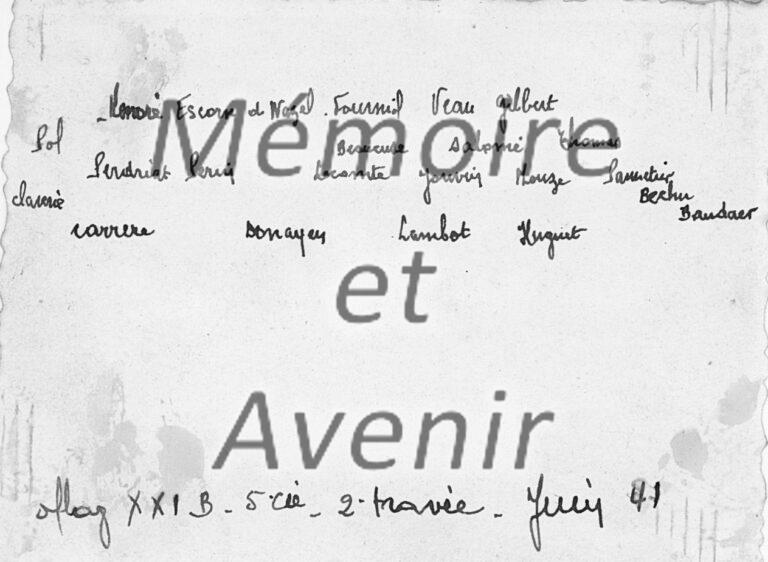 Escom d Nozel . Fournil Veau Gilbert
Sol Salomé Thomas
Perdriat Perin Lecomte Jouvin Mouze
Claverie
Bechu
Baudoer
Carrere Donayey Lambot Huguet
Mémoire
et
Avenir
oflag XXI B - 5e cie - 2e travée - Juin 41